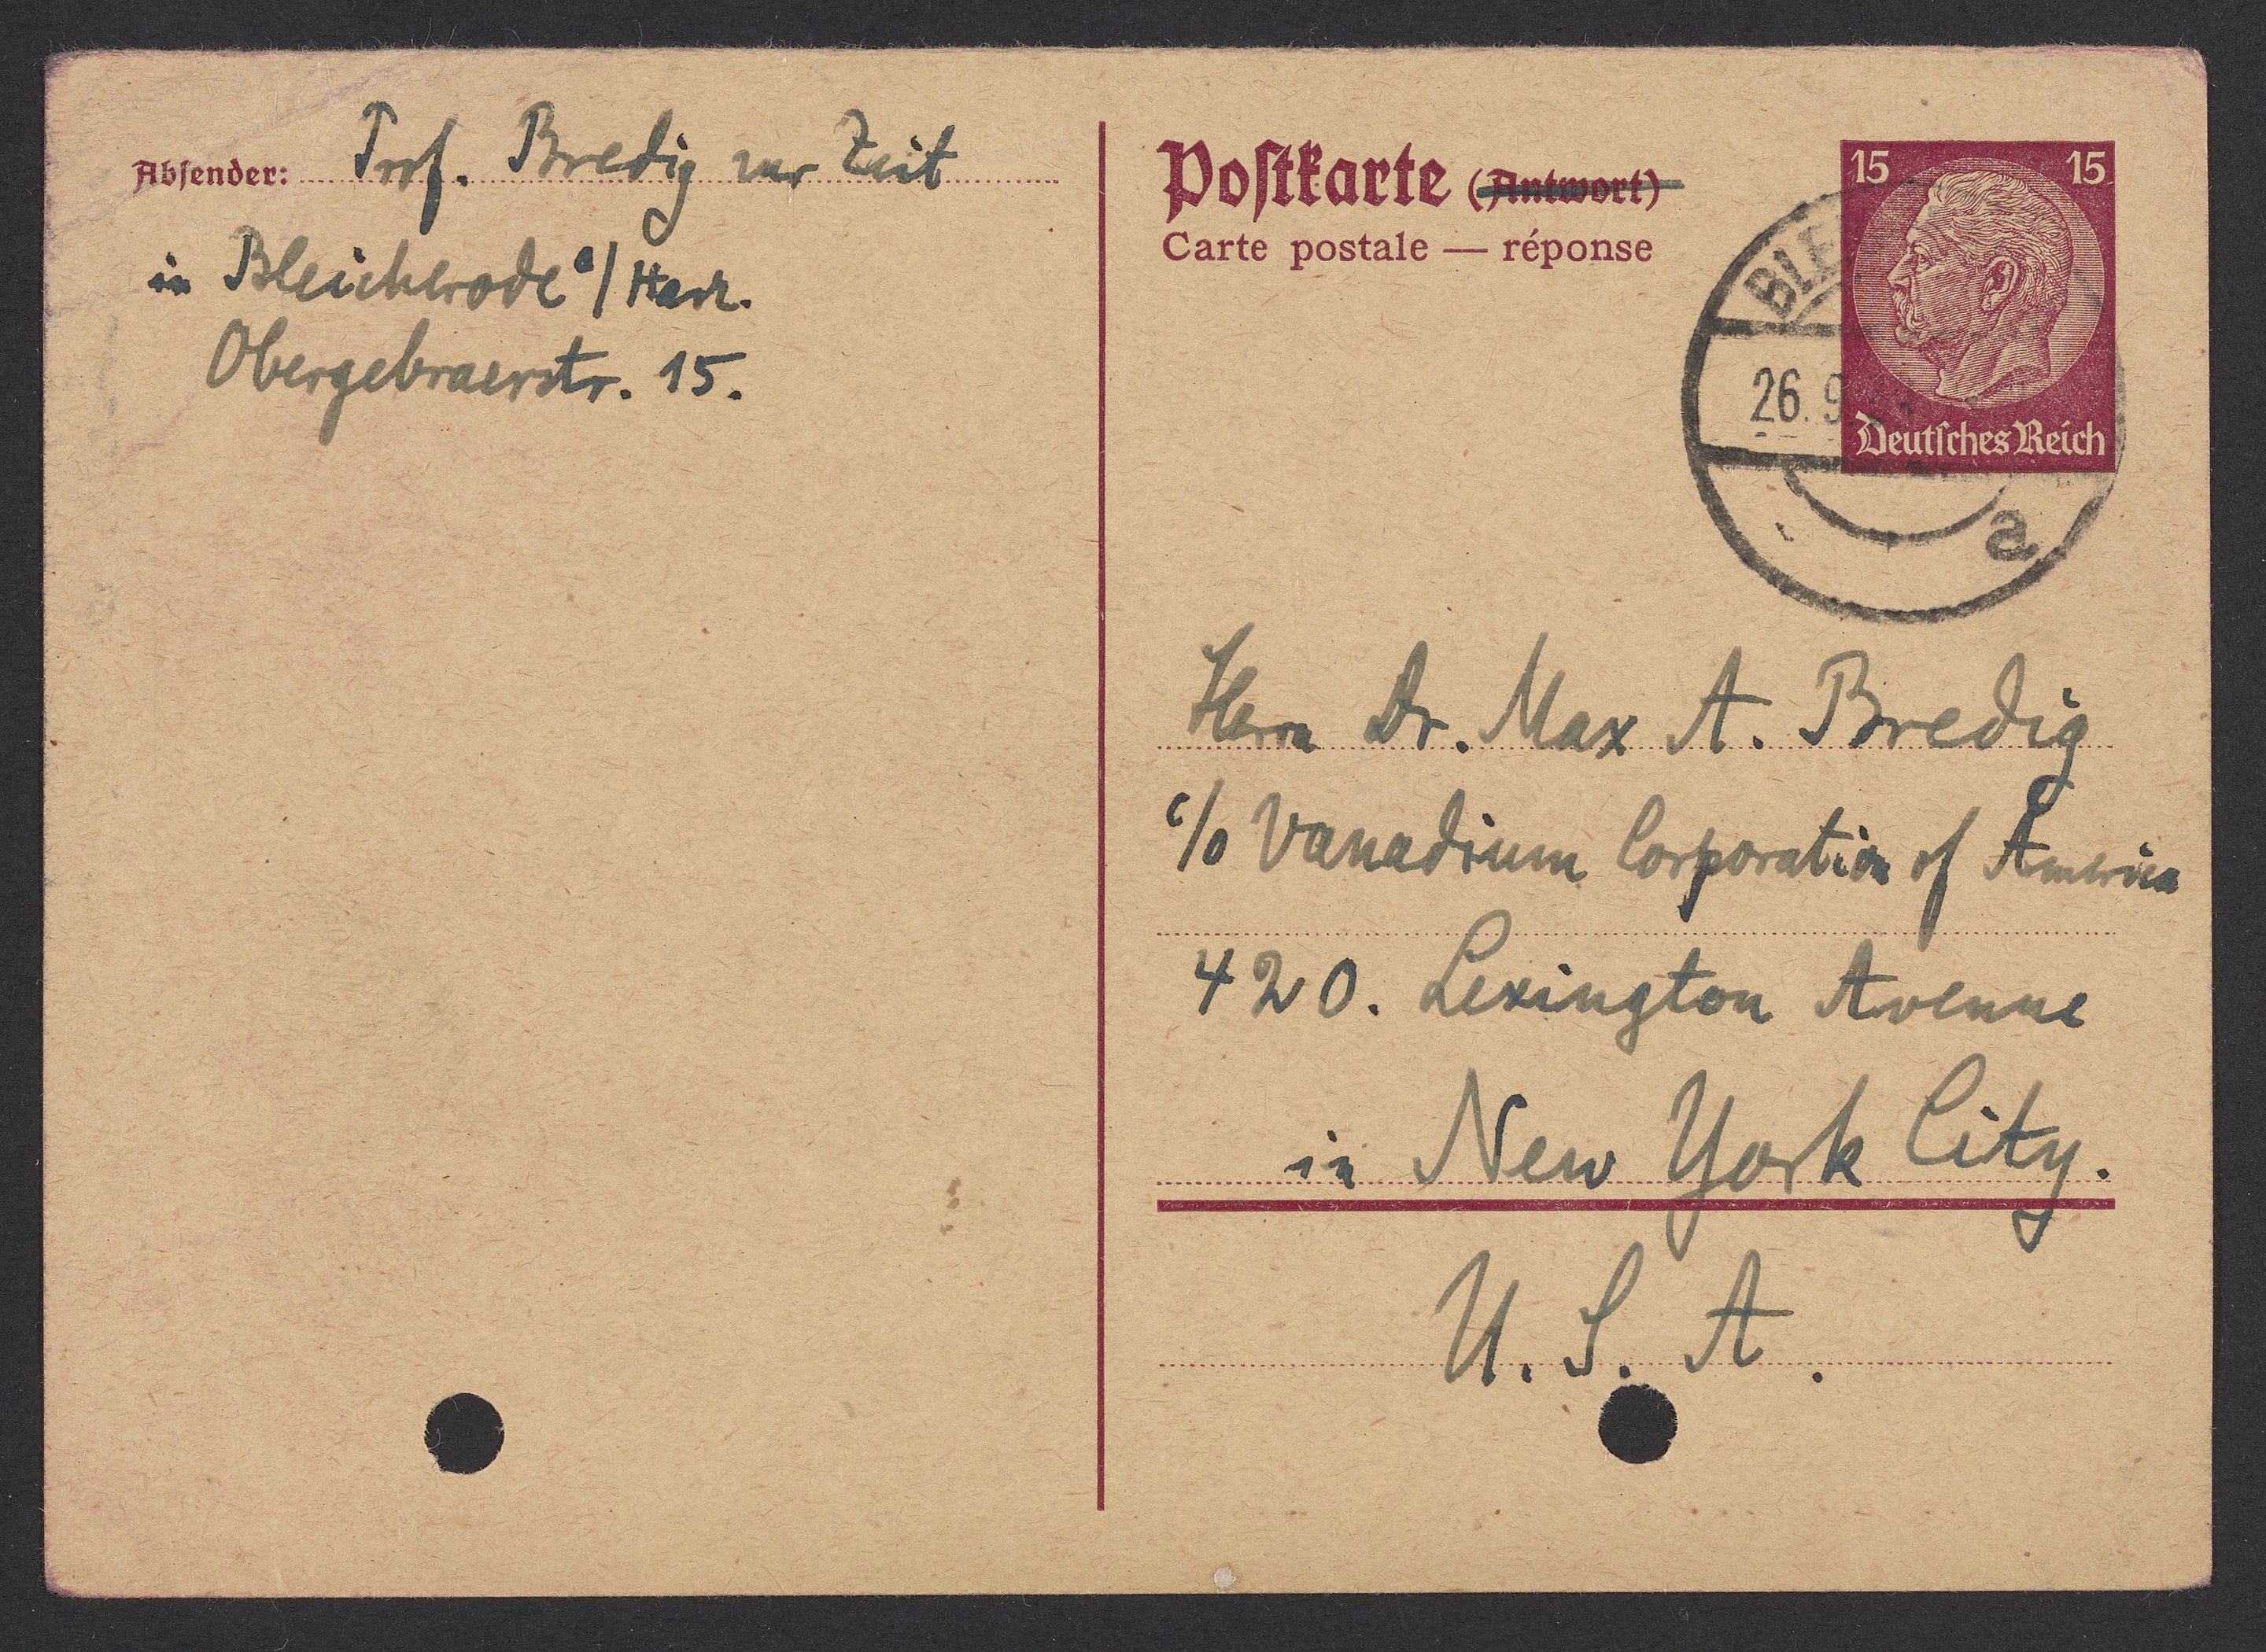 Absender: Prof. Bredig zur Zeit
in Bleicherode a/Harz.
Obergebraerstr. 15.
Postkarte (Antwort)
Carte postale — réponse
15 15
Deutsches Reich
26. 9
a
Herrn Dr. Max A. Bredig
c/o Vanadium Corporation of America
420. Lexington Avenue
in New York City.
U. S. A.